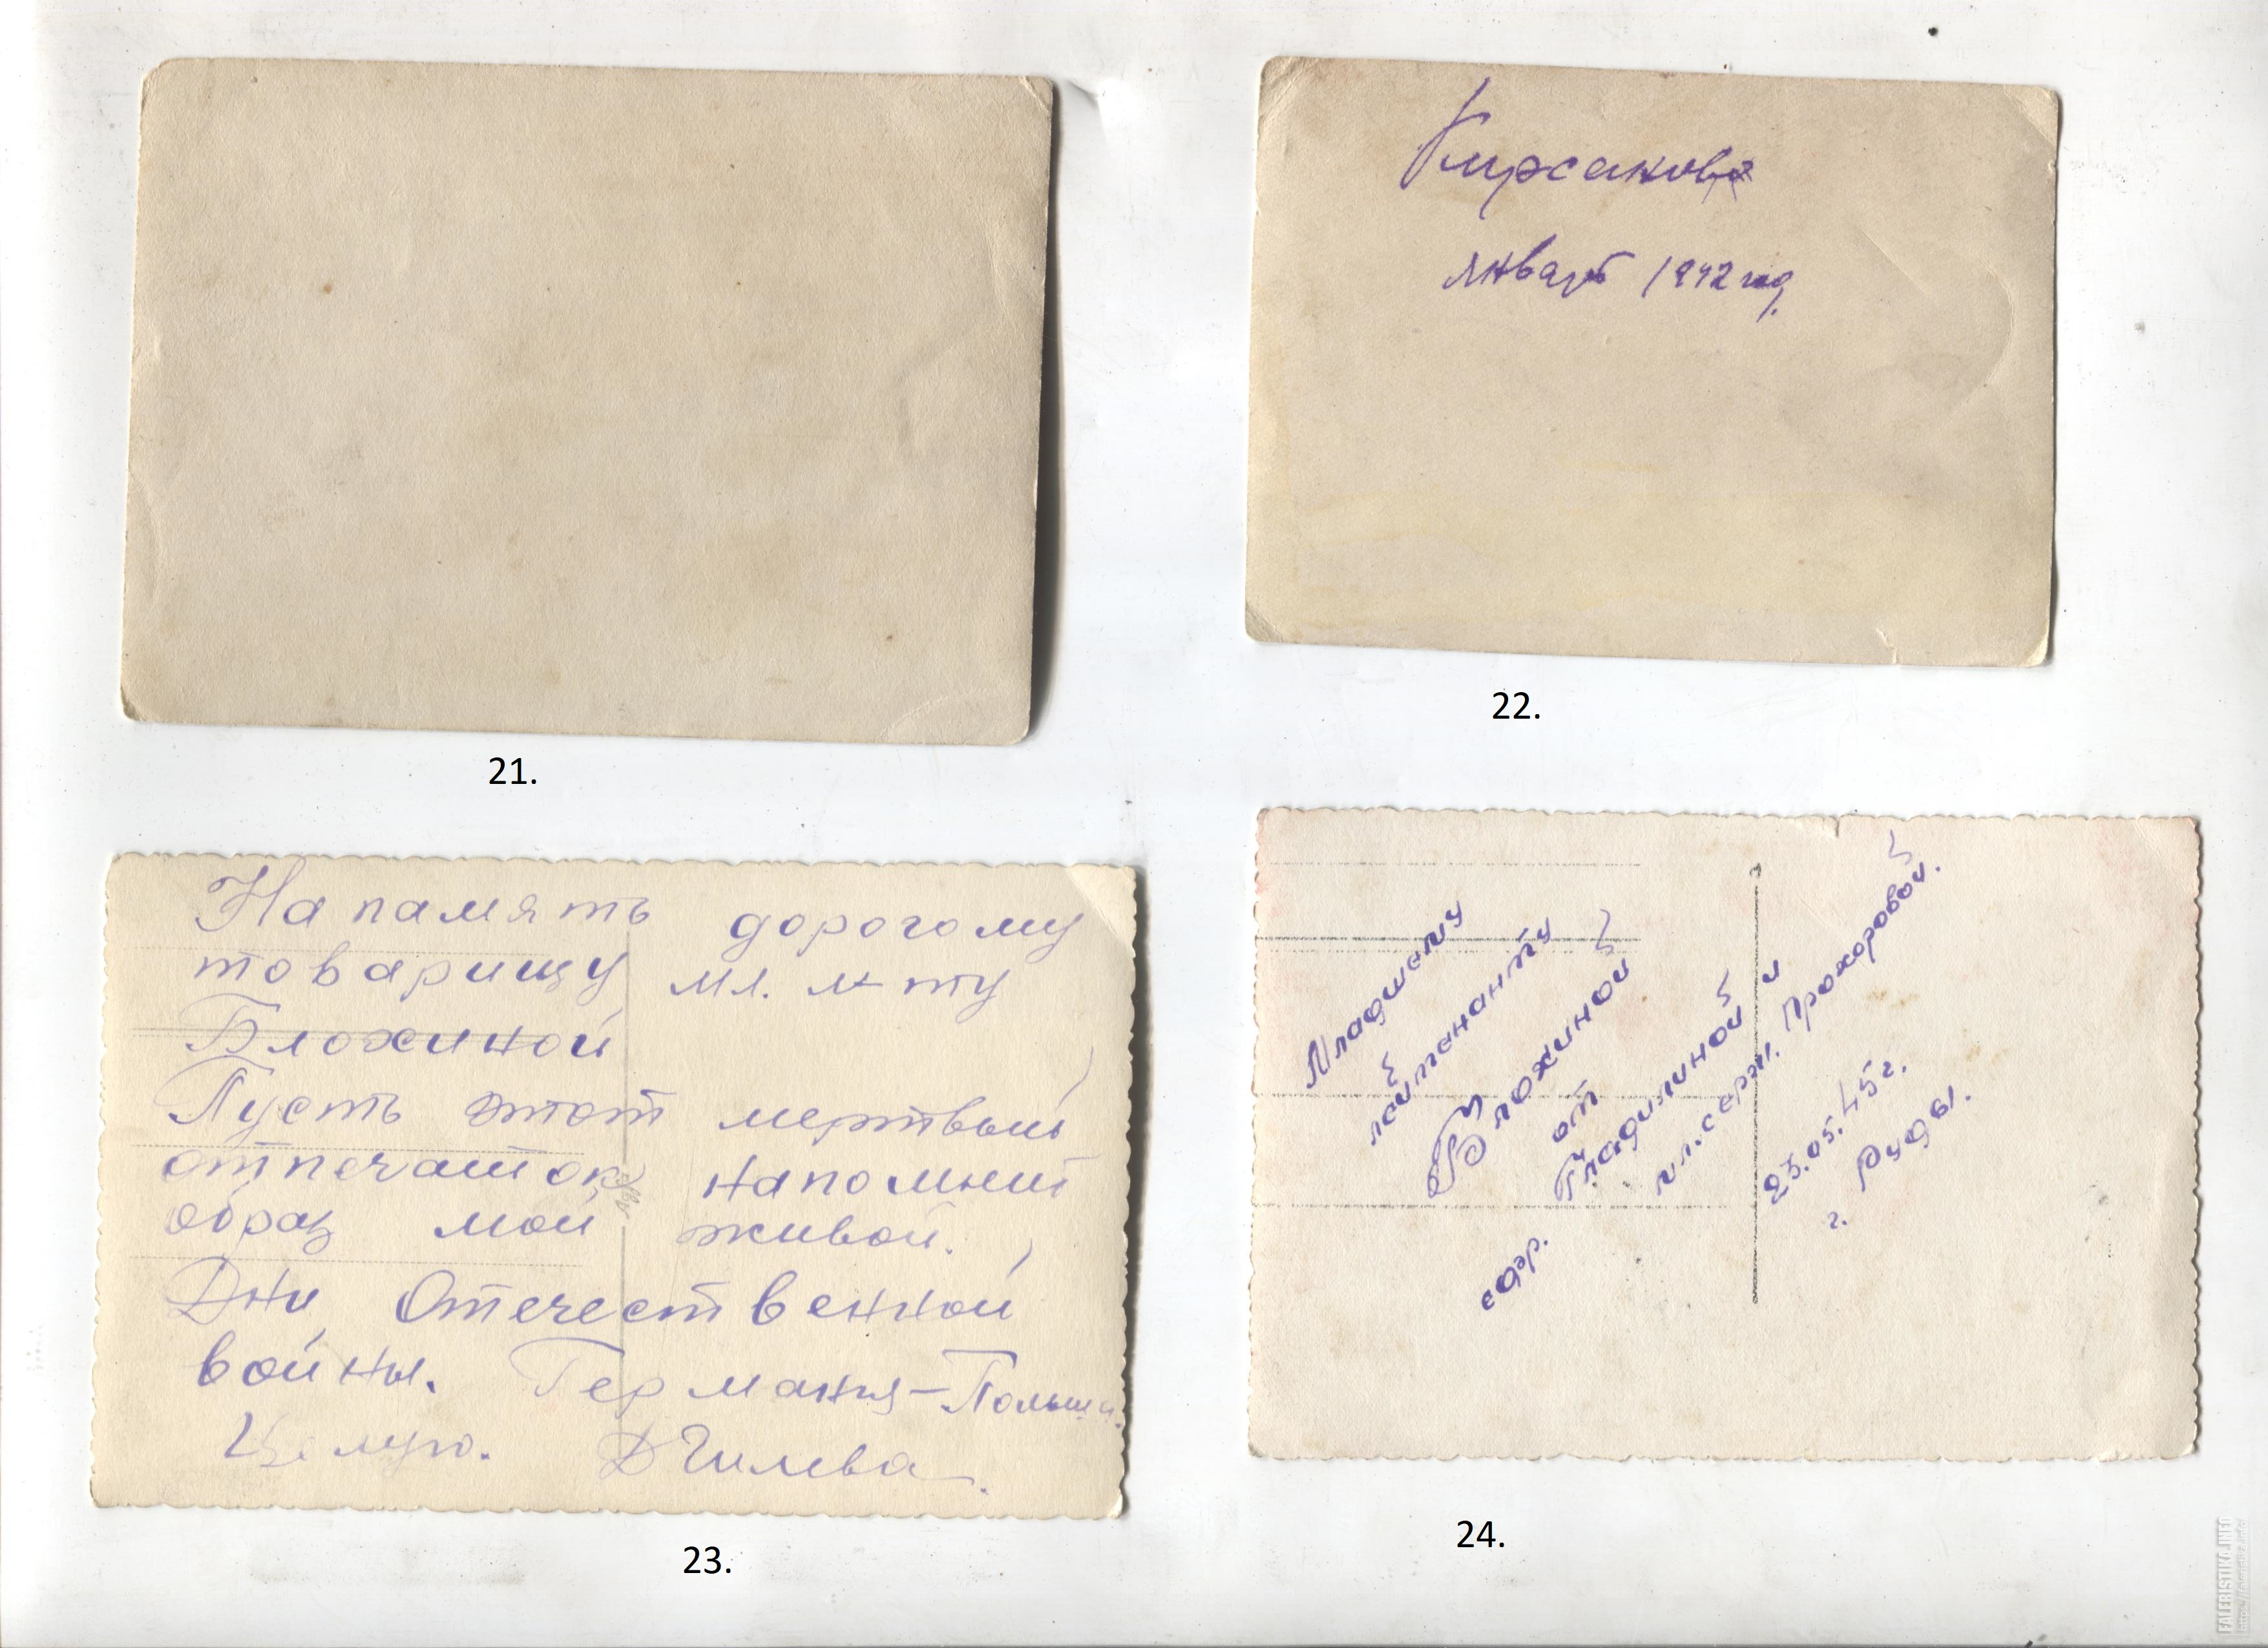 Кирсанова
январь 1942 год.
22.
21.
На память дорогому
товарищу мл. л-ту
Бложиной
Пусть этот мертвый
отпечаток напомнит
образ мой живой.
Дни Отечественной
войны. Германия-Польша.
Целую. Д Гилева.
23.
Младшему
лейтенанту
Бложиной
от
сер. Гладилиной и
мл. серж. Прохоровой.
23.05.45г.
г.
24.
FALERISTIKA.INFO